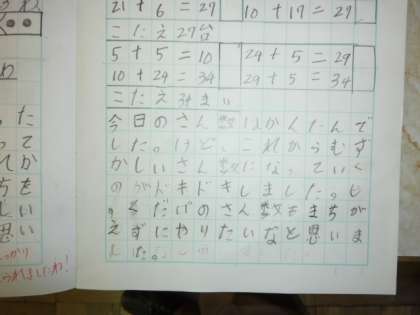 21 + 6 = 27 10 + 17 = 27
こたえ27台
5 + 5 = 10 24 + 5 = 29
10 + 24 = 34 29 + 5 = 34
こたえ34まい
今日のさん数はかんたんで
した。けど、これからむず
かしいさん数になっていく
のがドキドキしました。し
のさん数もまちが
えずにやりたいなと思いま
した。
った
って
てか
ちを
しい
思い